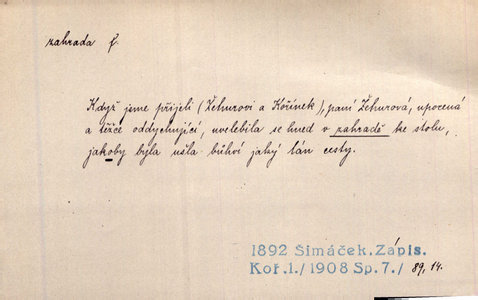 zahrada f.
Když jsme přijeli (Žehurovi a Kořínek), paní Žehurová, upocená
a těžce oddychující, uvelebila se hned v zahradě ke stolu,
jakoby byla ušla bůhví jaký lán cesty.
1892 Šimáček. Zápis.
Koř.1./1908 Sp.7./ 89, 14.